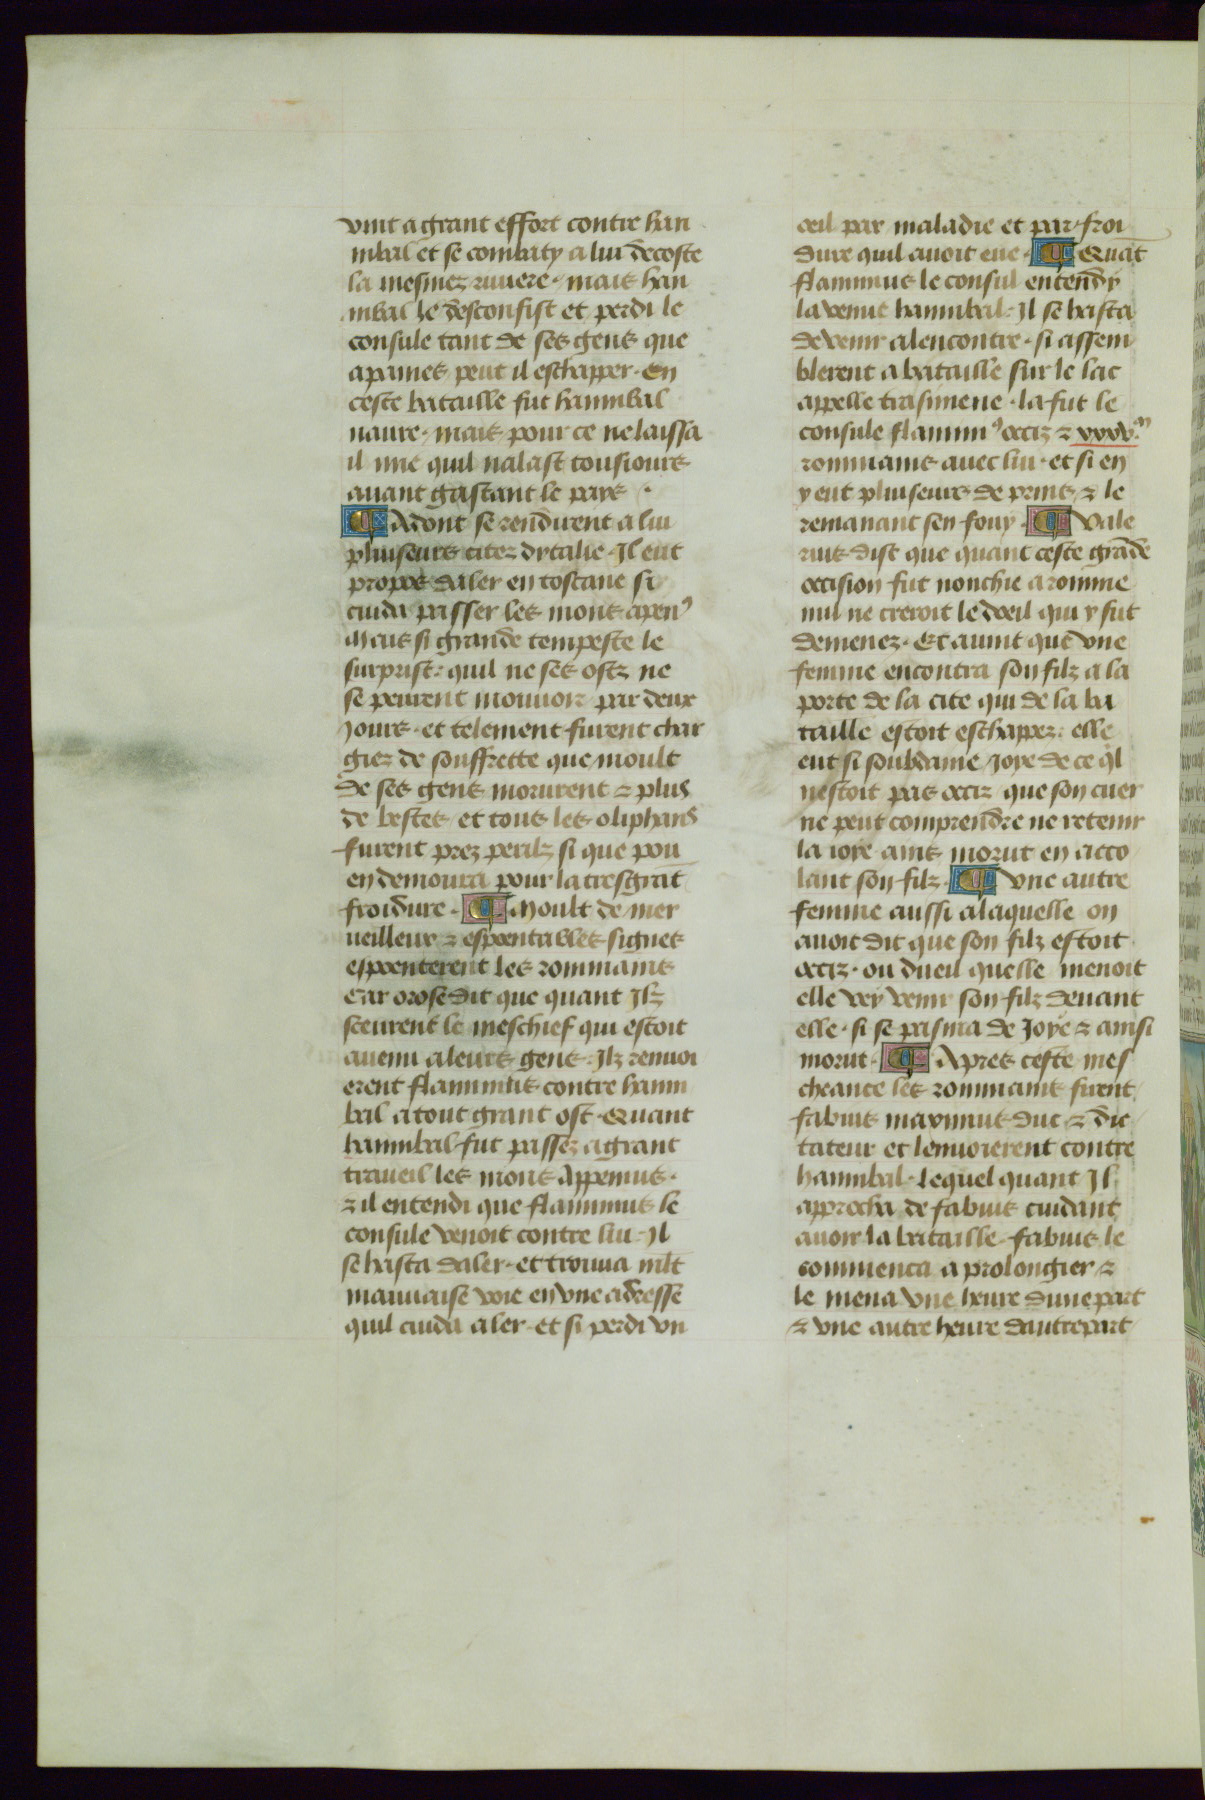 vint a grant effort contre han
nibal et se combaty a lui decoste
la mesmez riuiere · mais han
nibal le desconfist et perdi le
consule tant de ses gens que
apaines peut il eschapper · En
ceste bataille fut hannibal
naure · mais pour ce ne laissa
il mie quil nalast tousiours
auant gastant le pays ·
Adont se rendirent a lui
pluiseurs citez dytalie · Il eut
propos daler en toscane si
cuida passer les mons apenꝰ
Mais si grande tempeste le
surprist · quil ne ses ostz ne
se peurent mouuoir par deux
Jours · et telement furent char
giez de souffrette que moult
de ses gens morurent ⁊ plus
de bestes / et tous les oliphans
furent prez perilz si que pou
en demoura pour la tresgrāt
froidure · Moult de mer
ueilleux ⁊ espoentables signes
espoenterent les rommains
Car orose dit que quant Ilz
sceurent le meschief qui estoit
auenu a leurs gens · Ilz renuoi
erent flaminius contre hanni
bal a tout grant ost · Quant
hannibal fut passez a grant
traueil les mons Appenius ·
⁊ il entendi que flaminius le
consule venoit contre lui · Il
se hasta daler · et trouua mlt
mauuaise voie en vne adresse
quil cuida aler · et si perdi vn
oeil par maladie et par froi
dure quil auoit eue · Quāt
flaminius le consul entendy
la venue hannibal · Il se hasta
de venir alencontre · si assem
blerent a bataille sur le lac
appelle trasimene · la fut le
consule flaminiꝰ occiz ⁊ xxv.ᵐ
rommains auec lui · et si en
y eut pluiseurs de prins ⁊ le
remanant sen fouy · Vale
rius dist que quant ceste grāde
occision fut nonchie a romme
nul ne creroit le doeil qui y fut
demenez · Et auint que vne
femme encontra son filz a la
porte de la cite qui de la ba
taille estoit eschappez · elle
eut si soubdaine Joye de ce ql
nestoit pas occiz que son cuer
ne peut comprendre ne retenir
la ioye ains morut en acco
lant son filz · Vne autre
femme aussi a laquelle on
auoit dit que son filz estoit
occiz · ou dueil quelle menoit
elle vey venir son filz deuant
elle · si se pasma de Joye ⁊ ainsi
morut · Apres ceste mes
cheance les rommains firent
fabius maximus duc ⁊ dic
tateur et lenuoierent contre
hannibal · lequel quant Il
approcha de fabius cuidant
auoir la bataille · fabius le
commenca a prolongier ⁊
le mena vne heure dune part
⁊ vne autre heure dautre part